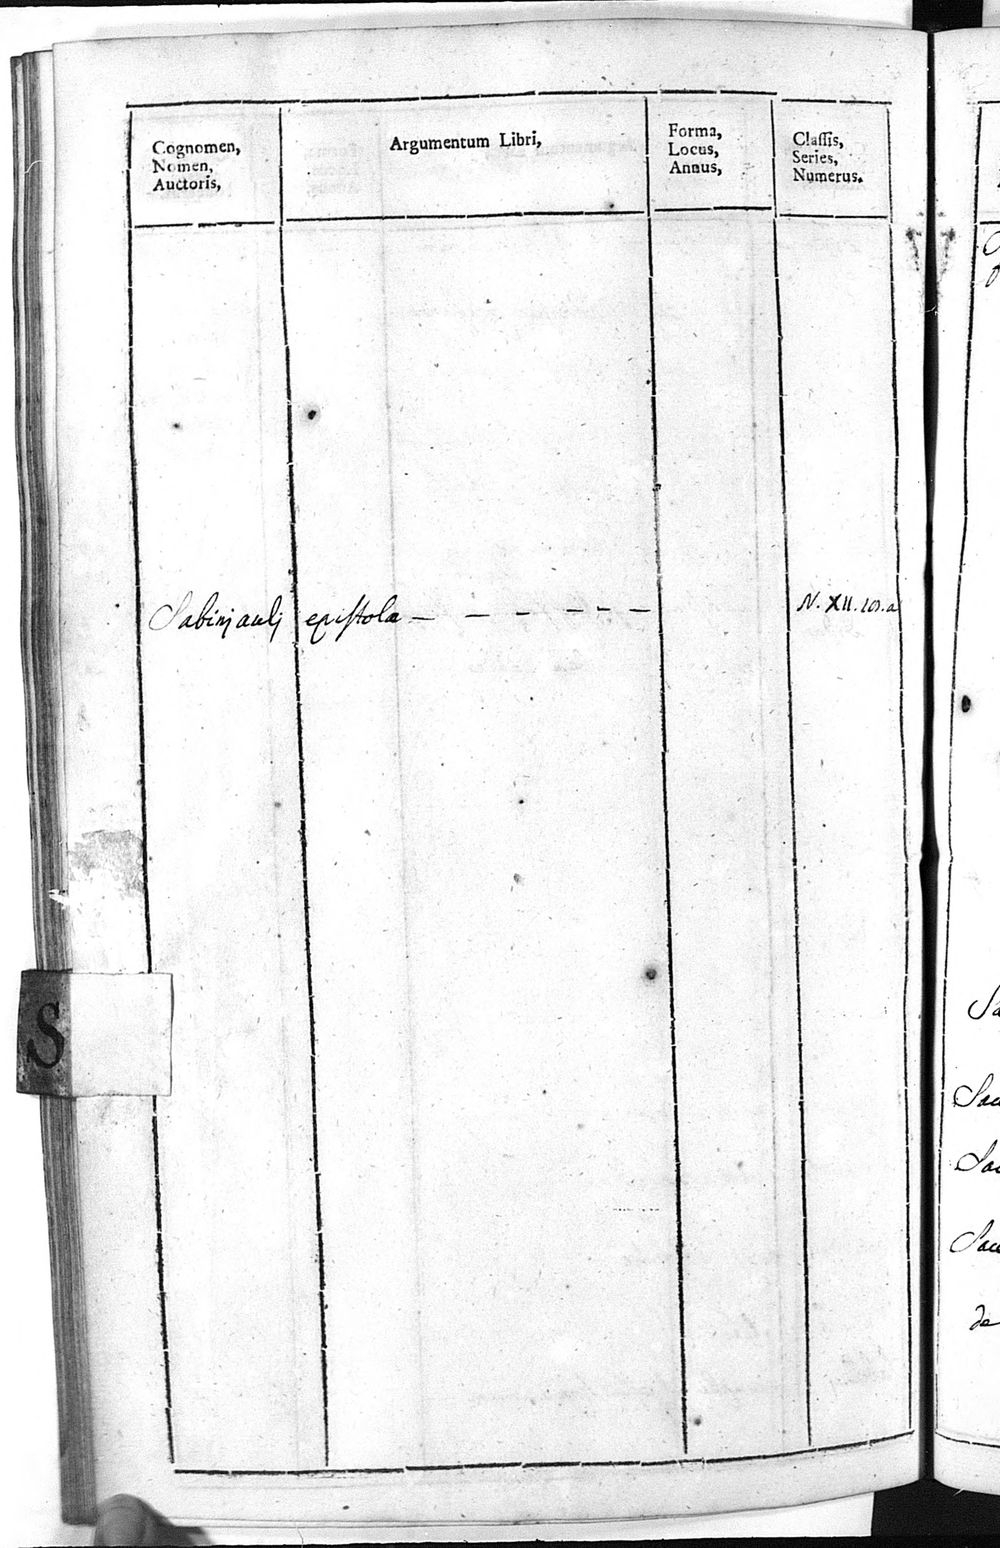 Cognomen,
Nomen,
Auctoris,
Argumentum Libri,
Forma,
Locus,
Annus,
Classis,
Series,
Numerus.
epistola — — — — — —
N. XII.
S
Sac
Sac
de